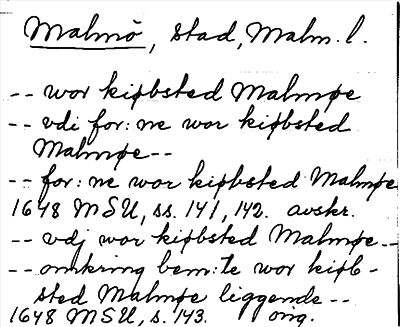 Malmö, stad, Malm. l.
-- wor kiøbsted Malmøe
-- vdi for: ne wor kiøbsted
Malmøe --
-- for: ne wor kiøbsted Malmøe
1648 MSU, ss. 141, 142. avskr.
-- vdj wor kiøbsted Malmøe --
-- omkring bem: te wor kiøb-
sted Malmøe liggende --
1648 MSU, s. 143. orig.